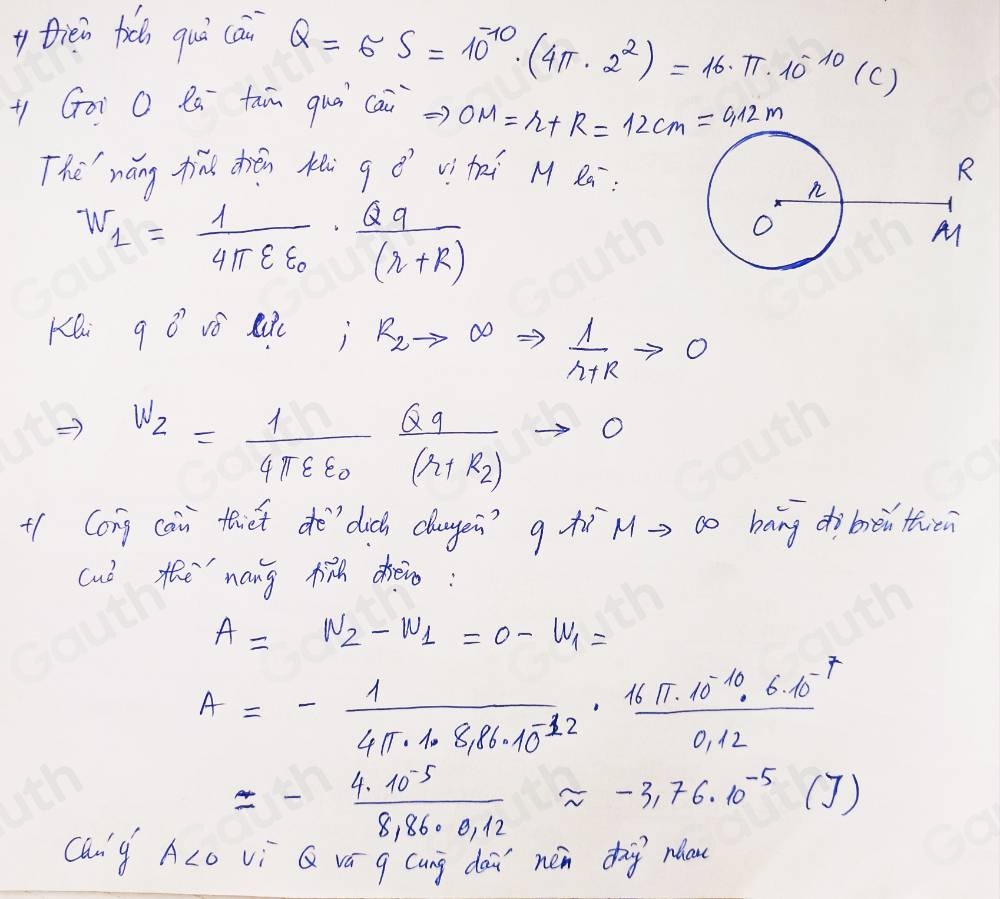 +/ Điện tích quả cầu Q = σ S = 10⁻¹⁰ . (4π . 2²) = 16 . π . 10⁻¹⁰ (C)
+/ Gọi O là tâm quả cầu ⇒ OM = r + R = 12cm = 0,12m
Thế năng tĩnh điện khi q ở vị trí M là:
W₁ = 1/(4π ε ε₀) . Qq/(r + R)
r
R
O
M
Khi q ở vô cực ; R₂ → ∞ ⇒ 1/(r + R) → 0
⇒ W₂ = 1/(4π ε ε₀) Qq/(r + R₂) → 0
+/ Công cần thiết để dịch chuyển q từ M → ∞ bằng độ biến thiên
của thế năng tĩnh điện :
A = W₂ − W₁ = 0 − W₁ =
A = − 1/(4π . 1 . 8,86 . 10⁻¹²) . (16 π . 10⁻¹⁰ . 6 . 10⁻⁷)/0,12
≈ − (4 . 10⁻⁵)/(8,86 . 0,12) ≈ −3,76 . 10⁻⁵ (J)
Chú ý A<0 vì Q và q cùng dấu nên đẩy nhau
Gauth